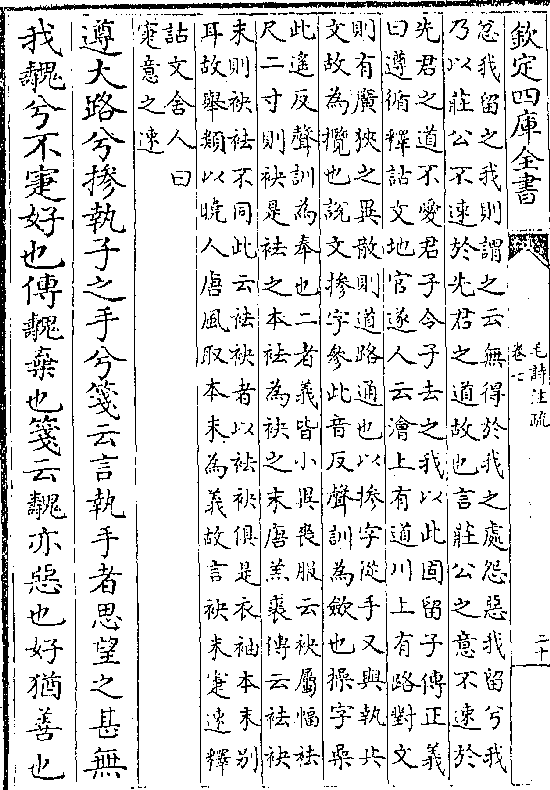 欽定四庫全書
毛詩注疏
卷七
二十
怨我留之我則謂之云無得於我之處怨惡我留兮我
乃以莊公不速於先君之道故也言莊公之意不速於
先君之道不愛君子令子去之我以此固留子傳正義
曰遵循釋詁文地官遂人云澮上有道川上有路對文
則有廣狹之異散則道路通也以摻字從手又與執共
文故為攬也說文摻字參此音反聲訓為歛也操字喿
此遥反聲訓為奉也二者義皆小異喪服云袂屬幅袪
尺二寸則袂是袪之本袪為袂之末唐羔裘傳云袪袂
末則袂袪不同此云袪袂者以袪袂俱是衣袖本末别
耳故舉類以曉人唐風取本末為義故言袂末寁速釋
詁文舍人曰
寁意之速
遵大路兮摻執子之手兮箋云言執手者思望之甚無
我魗兮不寁好也傳魗棄也箋云魗亦惡也好猶善也